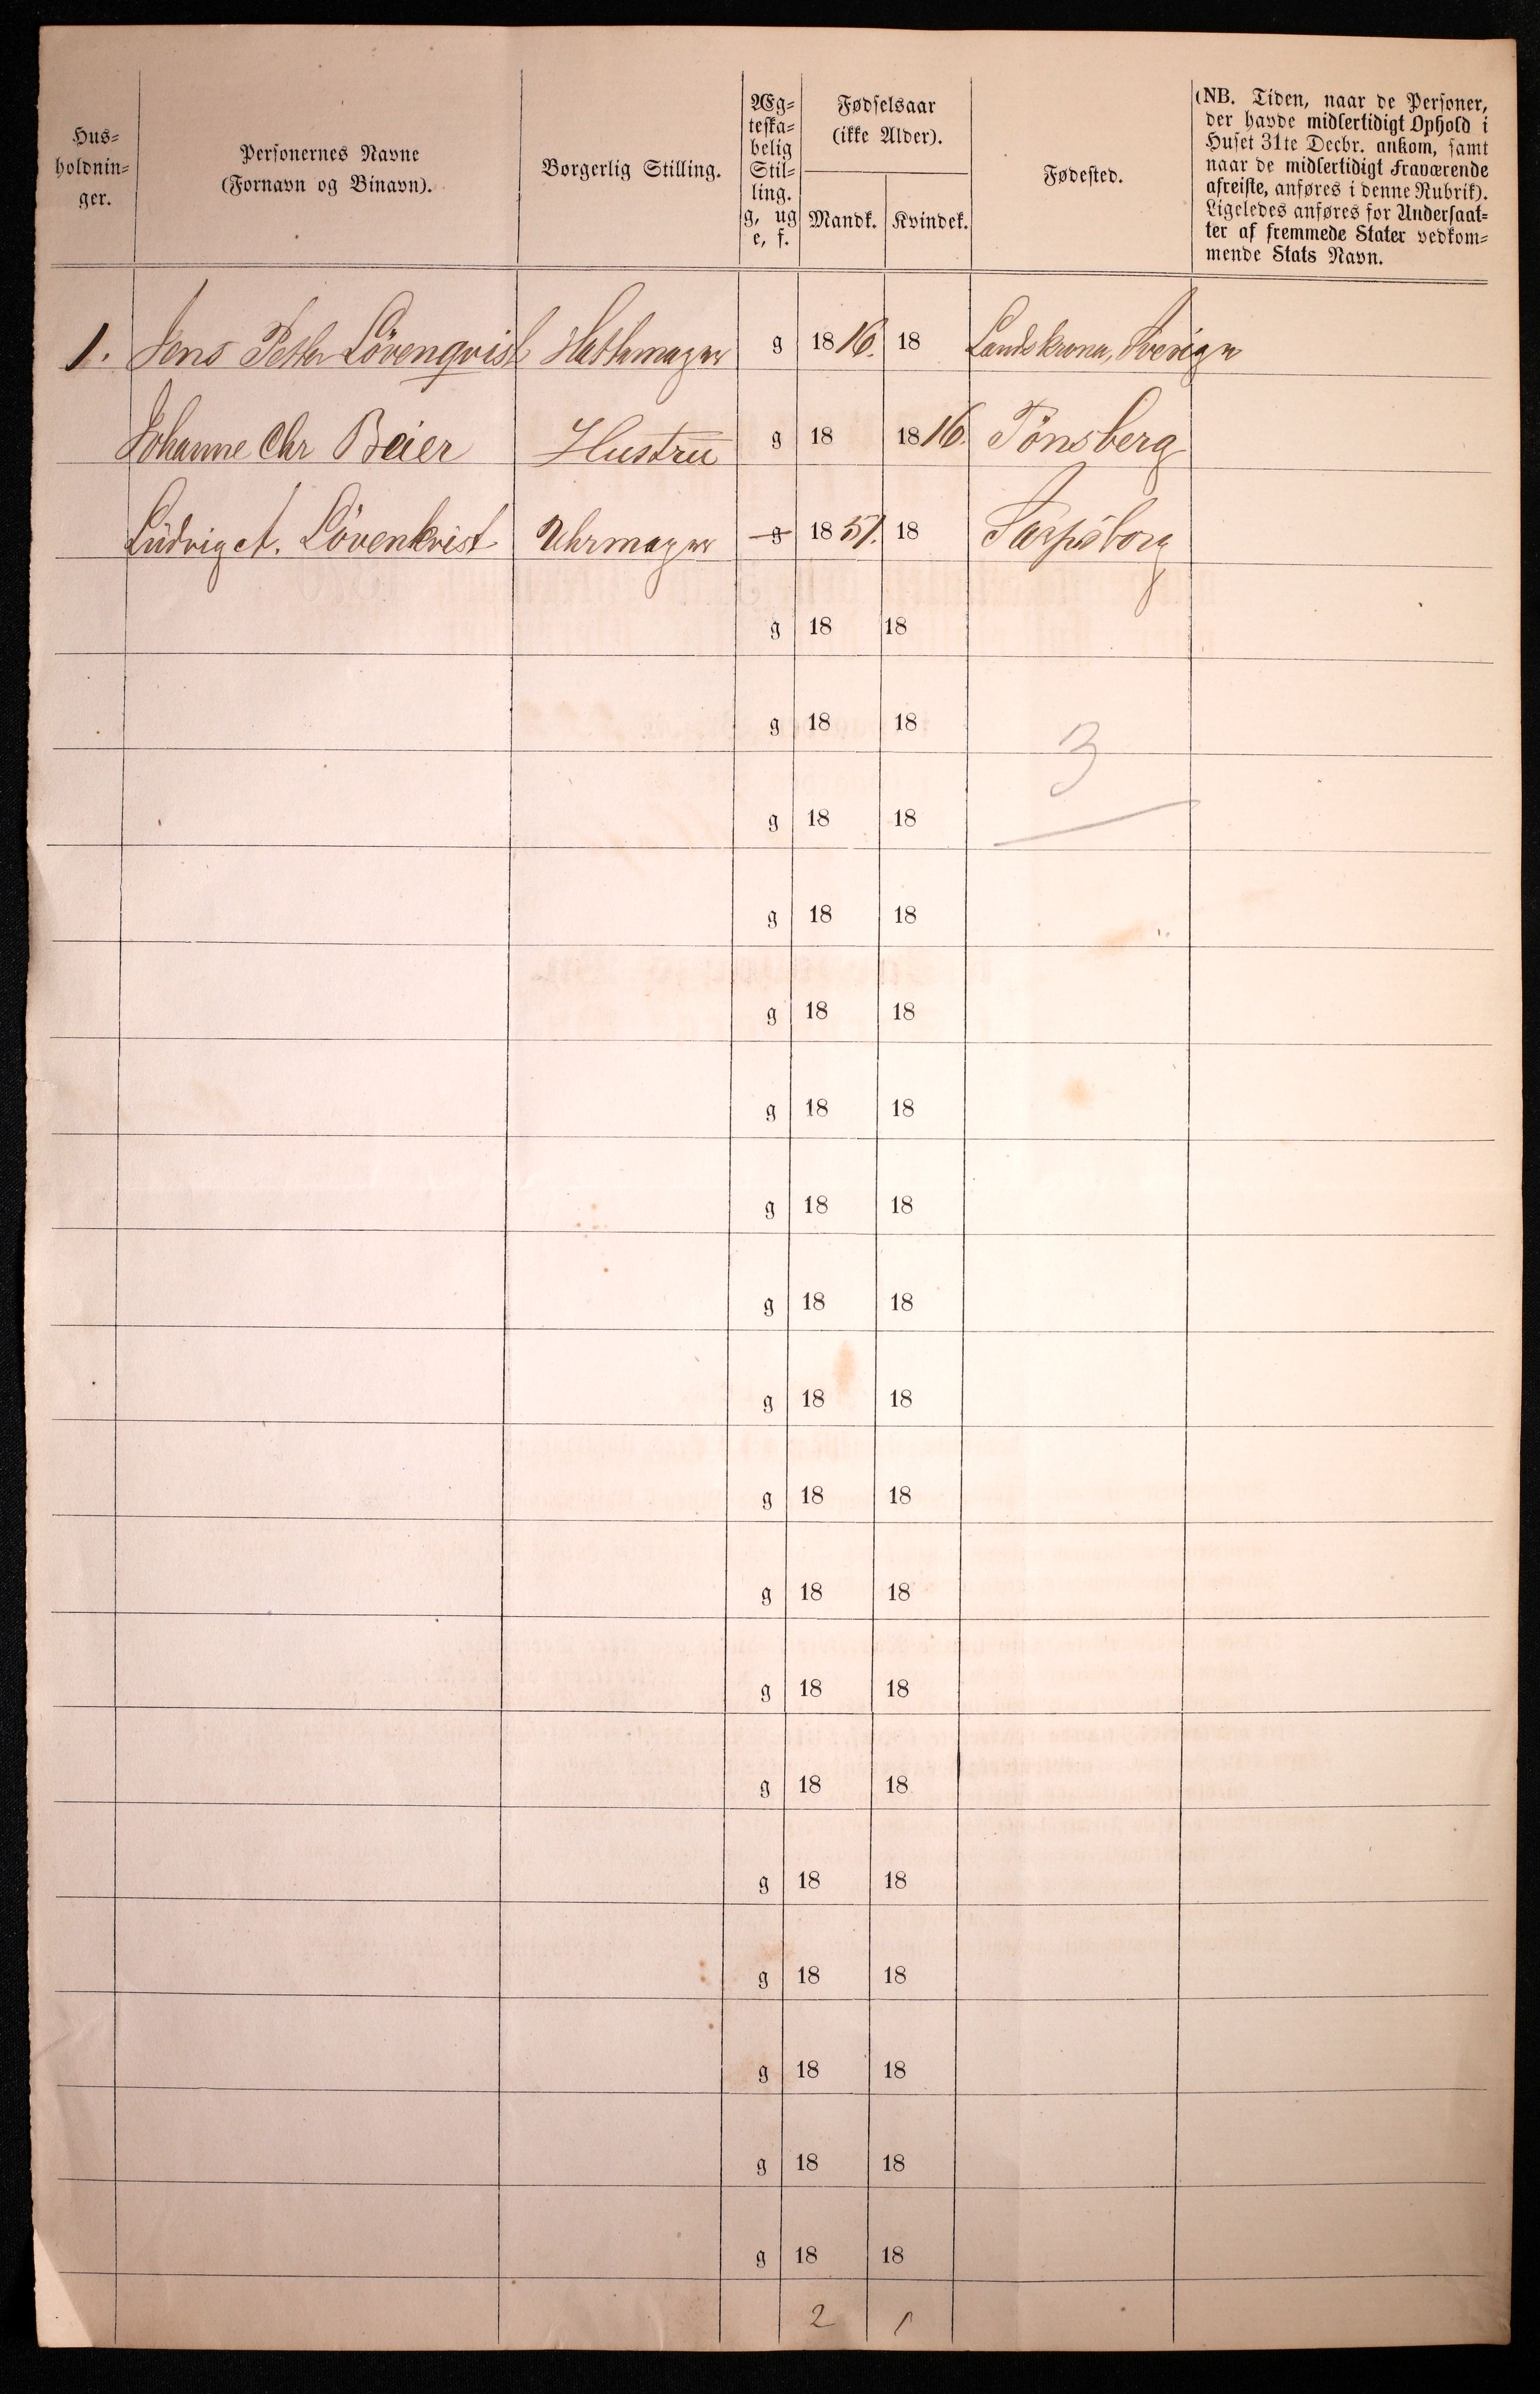 Hus=
holdnin=
ger.
Personernes Navne
(Fornavn og Binavn).
Borgerlig Stilling.
Æg=
teska=
belig
Stil=
ling.
g, ug
e, f.
Fødselsaar
(ikke Alder).
Mandk. Kvindek.
Fødested.
(NB. Tiden, naar de Personer,
der havde midlertidigt Ophold i
Huset 31te Decbr. ankom, samt
naar de midlertidigt Fraværende
afreiste, anføres i denne Rubrik).
Ligeledes anføres for Undersaat=
ter af fremmede Stater vedkom=
mende Stats Navn.
1. Jens Petter Lövenqvist Hattemager g 1816. 18 Landskrona, Sverige
Johanne Chr Beier Hustru g 18 1816. Tönsberg
Ludvig A. Lövenkvist Uhrmager g 1851. 18 Sarpsborg
g 18 18
g 18 18
3
g 18 18
g 18 18
g 18 18
g 18 18
g 18 18
g 18 18
g 18 18
g 18 18
g 18 18
g 18 18
g 18 18
g 18 18
g 18 18
g 18 18
g 18 18
g 18 18
2 1